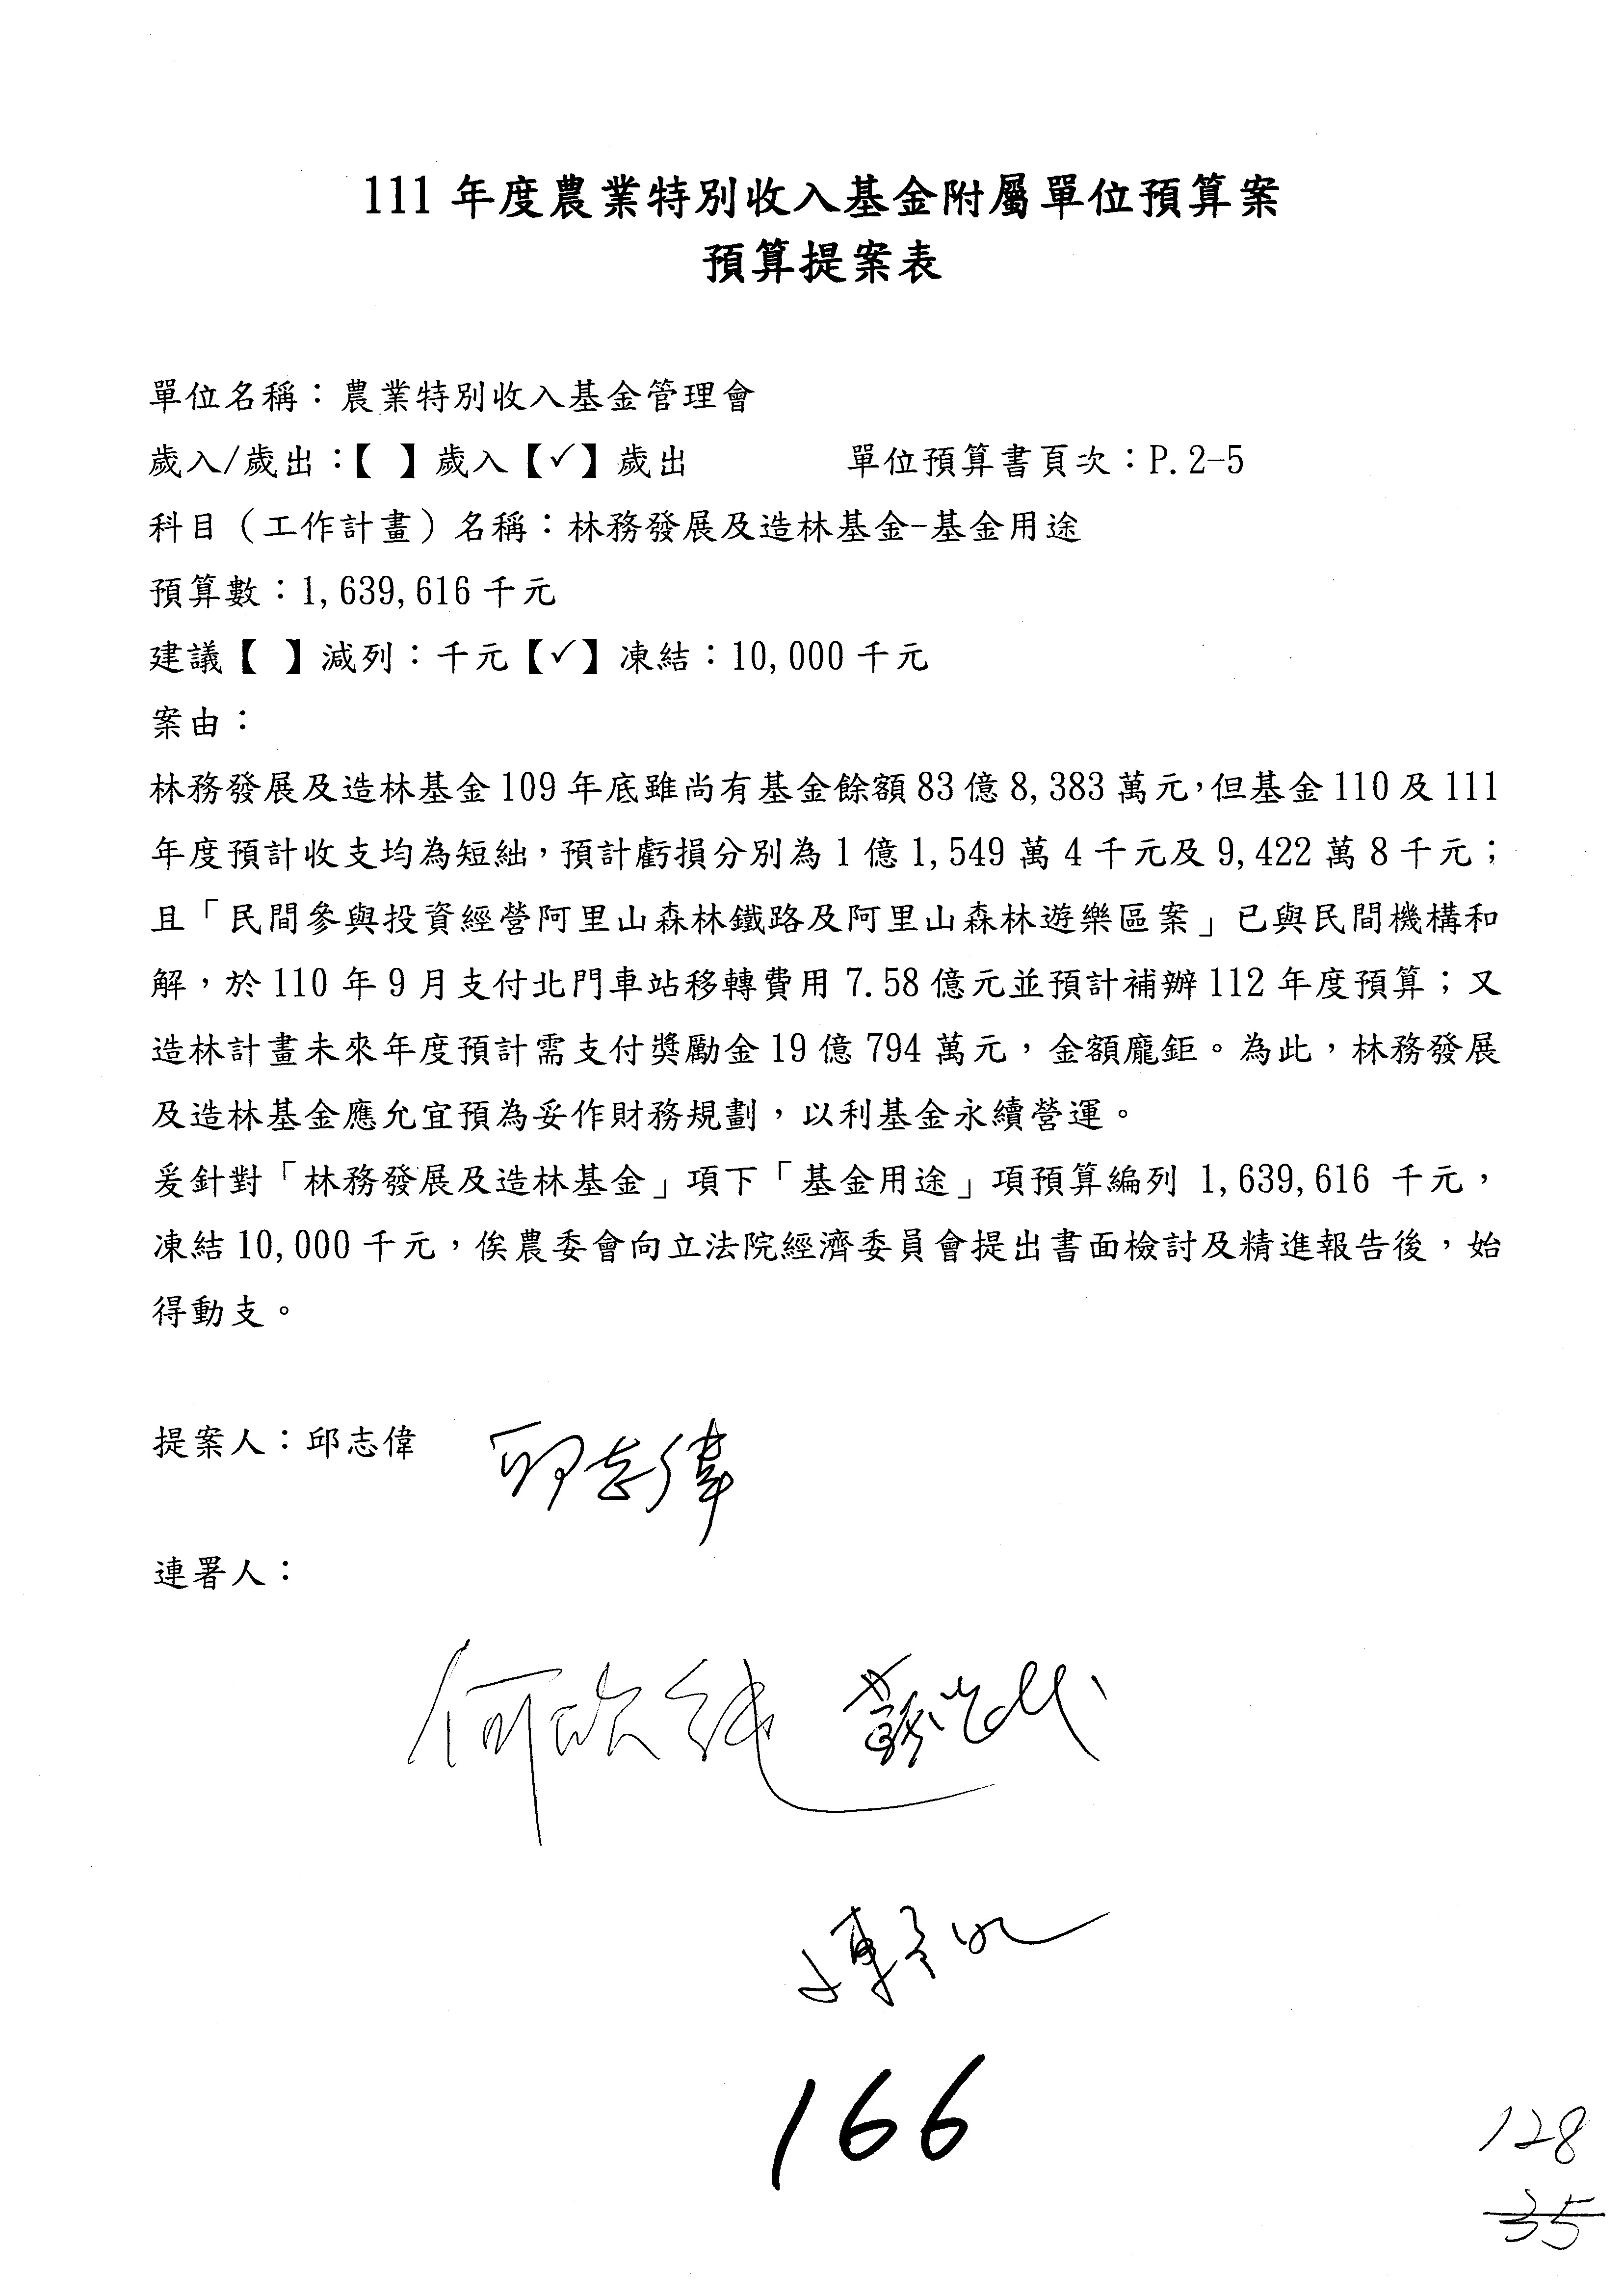 111 年度農業特別收入基金附屬單位預算案
預算提案表
單位名稱：農業特別收入基金管理會
歲入/歲出：【 】歲入【✓】歲出 單位預算書頁次：P.2-5
科目（工作計畫）名稱：林務發展及造林基金-基金用途
預算數：1,639,616 千元
建議【 】減列：千元【✓】凍結：10,000 千元
案由：
林務發展及造林基金 109 年底雖尚有基金餘額 83 億 8,383 萬元，但基金 110 及 111
年度預計收支均為短絀，預計虧損分別為 1 億 1,549 萬 4 千元及 9,422 萬 8 千元；
且「民間參與投資經營阿里山森林鐵路及阿里山森林遊樂區案」已與民間機構和
解，於 110 年 9 月支付北門車站移轉費用 7.58 億元並預計補辦 112 年度預算；又
造林計畫未來年度預計需支付獎勵金 19 億 794 萬元，金額龐鉅。為此，林務發展
及造林基金應允宜預為妥作財務規劃，以利基金永續營運。
爰針對「林務發展及造林基金」項下「基金用途」項預算編列 1,639,616 千元，
凍結 10,000 千元，俟農委會向立法院經濟委員會提出書面檢討及精進報告後，始
得動支。
提案人：邱志偉 邱志偉
連署人：
何欣純
166
128
35